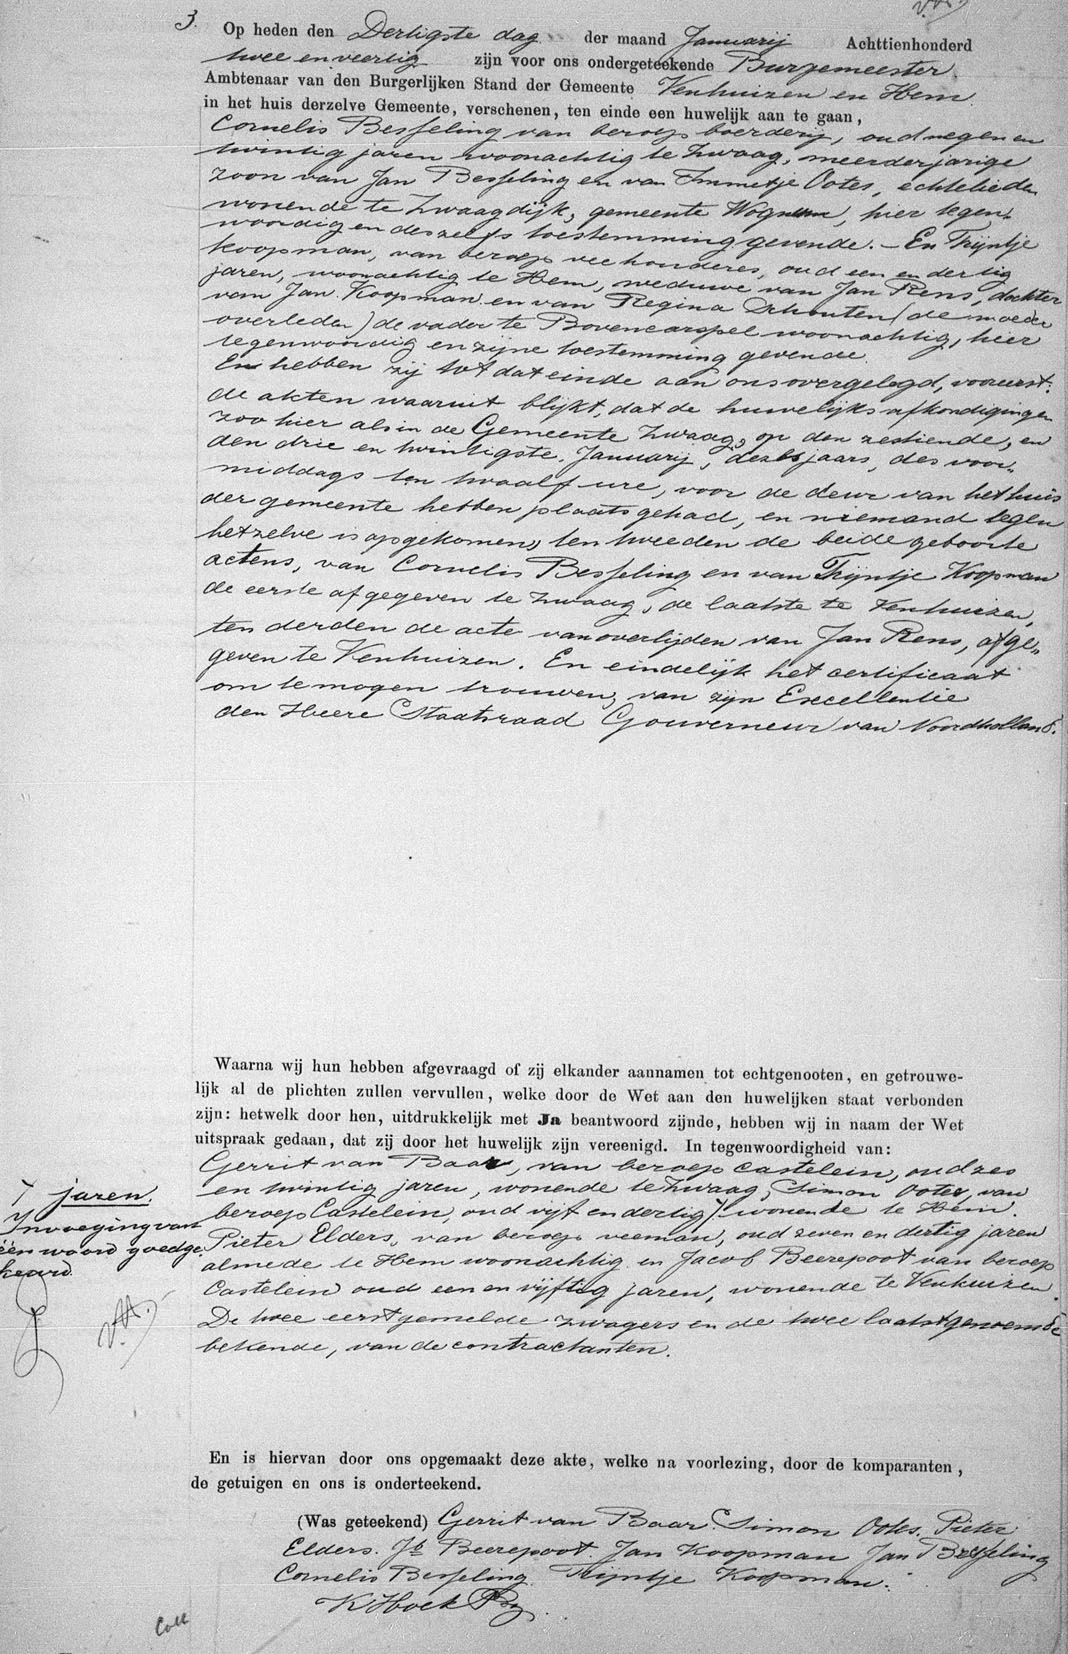 3.
Op heden den Dertigste dag der maand Januarij Achttienhonderd
twee en veertig zijn voor ons ondergeteekende Burgemeester.
Ambtenaar van den Burgerlijken Stand der Gemeente Venhuizen en Hem
in het huis derzelve Gemeente, verschenen, ten einde een huwelijk aan te gaan,
Cornelis Besseling van beroep boerderij, oud negen en
twintig jaren woonachtig te Zwaag, meerderjarige
zoon van Jan Besseling en van Immetje Ootes, echtelieden
wonende te Zwaagdijk, gemeente Wognum, hier tegen-
woordig en deszelfs toestemming gevende. – En Trijntje
Koopman, van beroep veehouderes, oud een en dertig
jaren, woonachtig te Hem, weduwe van Jan Rens, dochter
van Jan Koopman en van Regina Schouten (de moeder
overleden) de vader te Bovencarspel woonachtig, hier
tegenwoordig en zijne toestemming gevende.
En hebben zij tot dat einde aan ons overgelegd, vooreerst:
de akten waaruit blijkt, dat de huwelijks afkondigingen
zoo hier als in de Gemeente Zwaag, op den zestiende, en
den drie en twintigste Januarij, dezes jaars, des voor-
middags ten twaalf ure, voor de deur van het huis
der gemeente hebben plaats gehad, en niemand tegen
hetzelve is opgekomen, ten tweeden de beide geboorte
actens, van Cornelis Besseling en van Trijntje Koopman
de eerste afgegeven te Zwaag, de laatste te Venhuizen,
ten derden de acte van overlijden van Jan Rens, afge-
geven te Venhuizen. En eindelijk het certificaat
om te mogen trouwen, van zijn Excellentie
den Heere Staatsraad Gouverneur van Noordholland.
Waarna wij hun hebben afgevraagd of zij elkander aannamen tot echtgenooten, en getrouwe-
lijk al de plichten zullen vervullen, welke door de Wet aan den huwelijken staat verbonden
zijn: hetwelk door hen, uitdrukkelijk met Ja beantwoord zijnde, hebben wij in naam der Wet
uitspraak gedaan, dat zij door het huwelijk zijn vereenigd. In tegenwoordigheid van:
Gerrit van Baar, van beroep castelein, oud zes
en twintig jaren, wonende te Zwaag, Simon Ootes, van
beroep Castelein, oud vijf en dertig wonende te Hem.
Pieter Elders, van beroep veeman, oud zeven en dertig jaren
almede te Hem woonachtig en Jacob Beerepoot van beroep
Castelein oud een en vijftig jaren, wonende te Venhuizen.
De twee eerstgemelde zwagers en de twee laatstgenoemde
bekende, van de contractanten.
jaren.
Invoeging van
één woord goedge-
keurd.
En is hiervan door ons opgemaakt deze akte, welke na voorlezing, door de komparanten,
de getuigen en ons is onderteekend.
(Was geteekend) Gerrit van Baar. Simon Ootes. Pieter
Elders. Jb Beerepoot. Jan Koopman Jan Besseling
Cornelis Besseling. Trijntje Koopman.
K Hoek Bg.
Coll